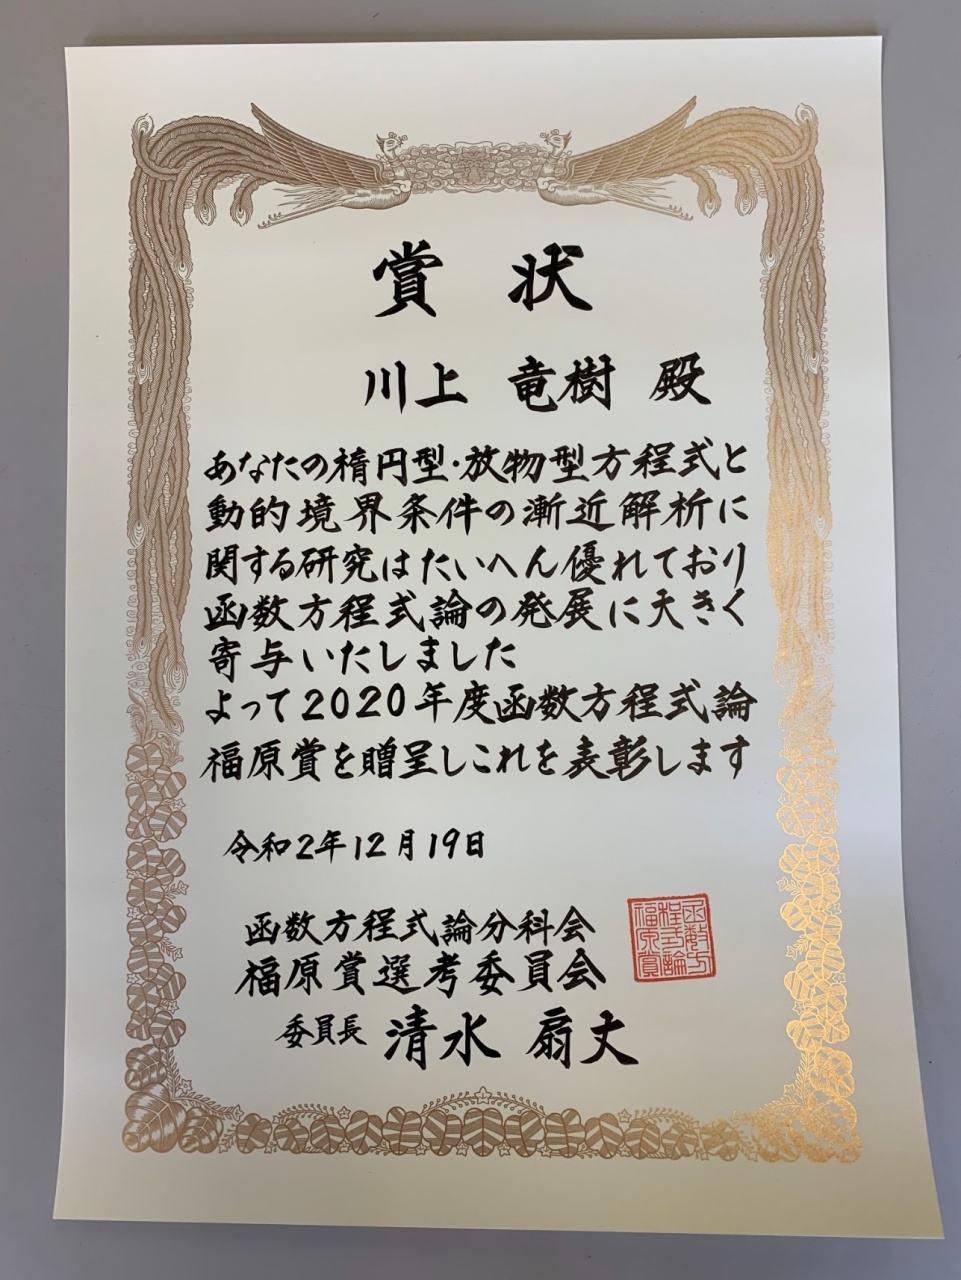 賞 状
川上 竜樹 殿
あなたの楕円型・放物型方程式と
動的境界条件の漸近解析に
関する研究はたいへん優れており
函数方程式論の発展に大きく
寄与いたしました
よって2020年度函数方程式論
福原賞を贈呈しこれを表彰します
令和2年12月19日
函数方程式論分科会
福原賞選考委員会
委員長 清水 扇丈
函数方
程式論
福原賞